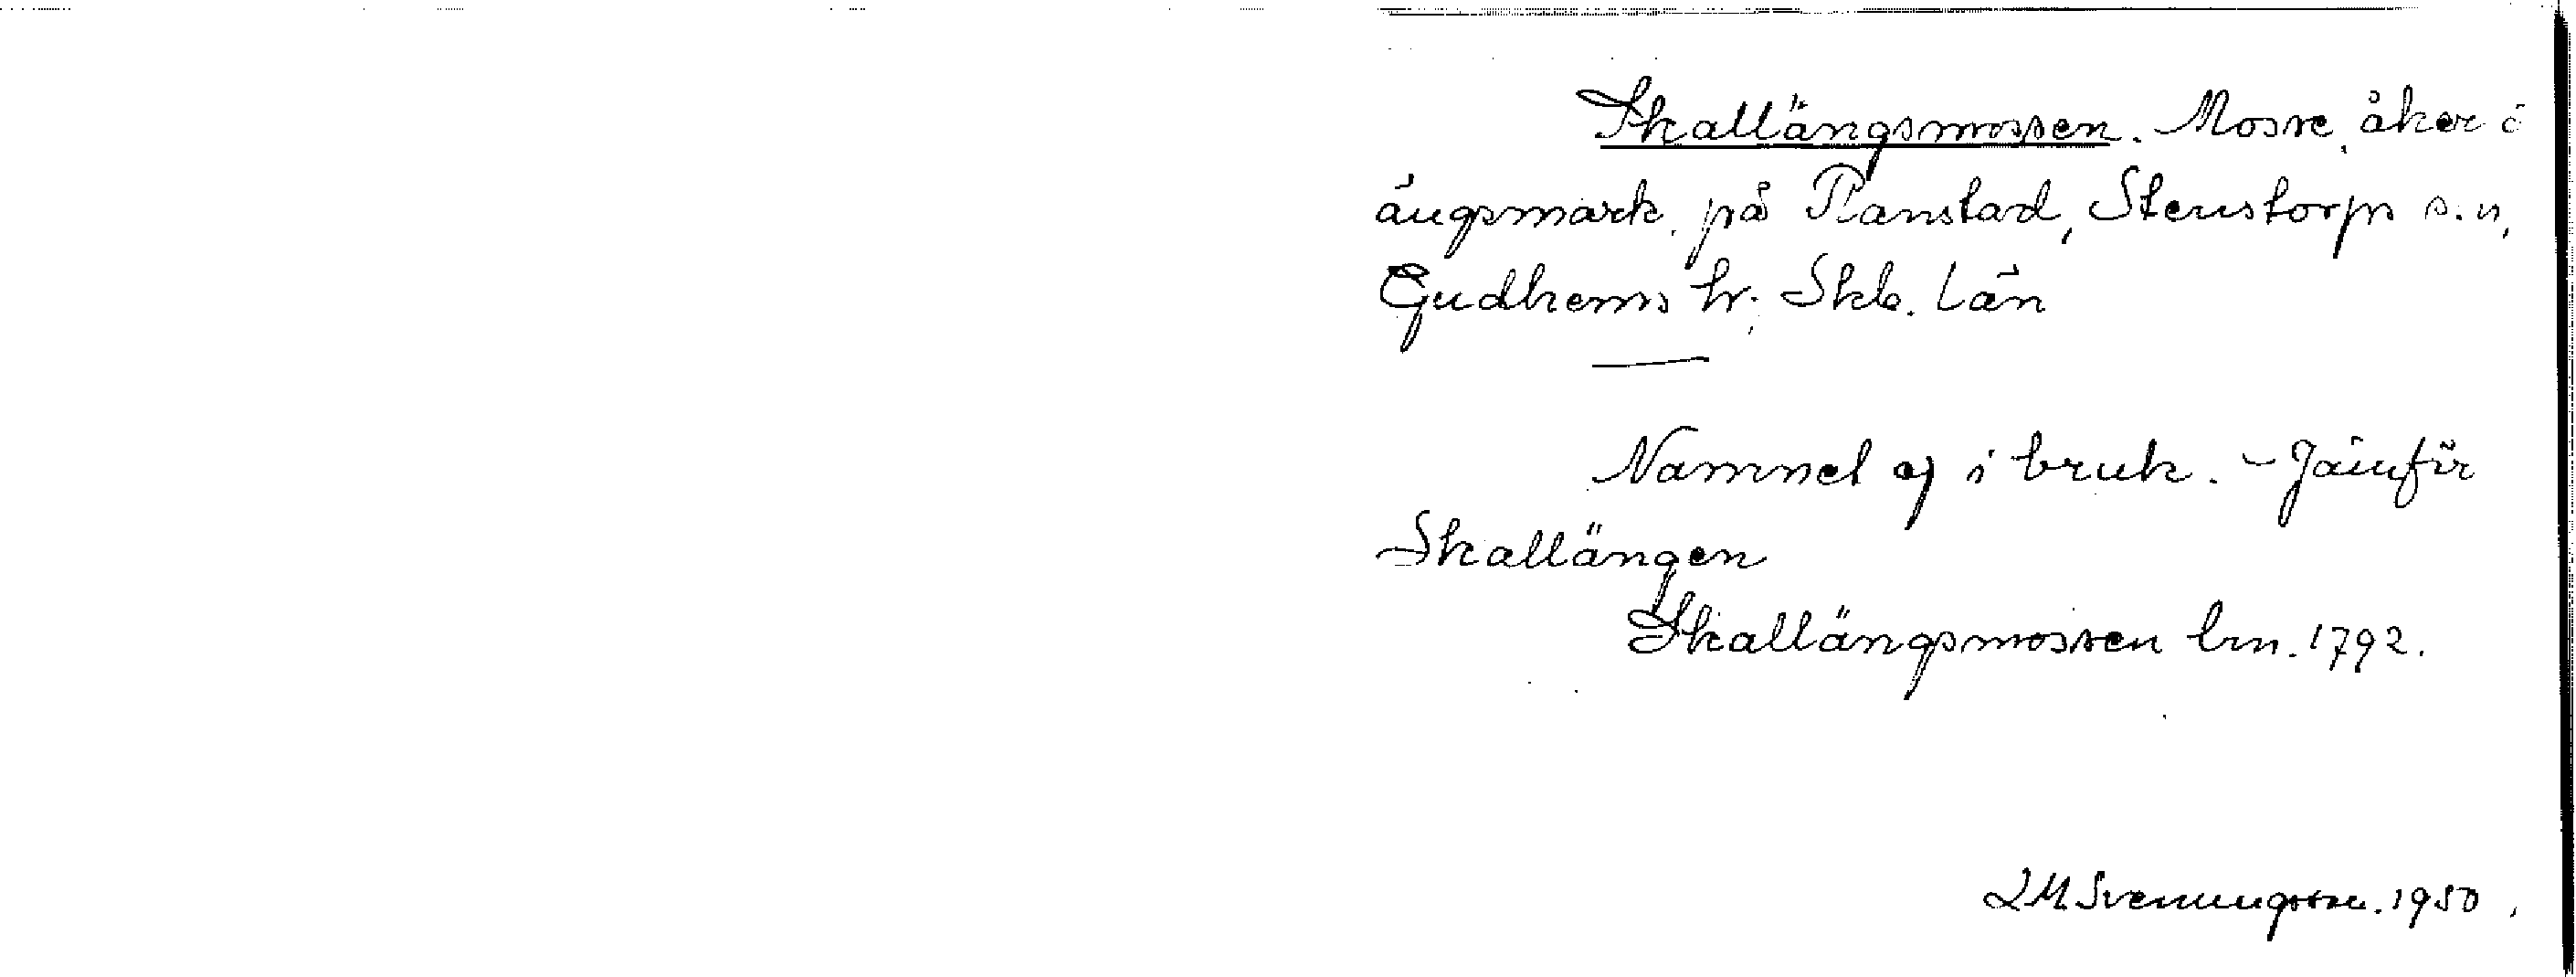 Skallängsmossen. Mosse, åker o
ängsmark, på Ranstad, Stenstorps s:n,
Gudhems hr; Skb. län
—
Namnet ej i bruk. – Jämför
Skallängen
Skallängsmossen lm. 1792.
LM Svenungsson. 1950.